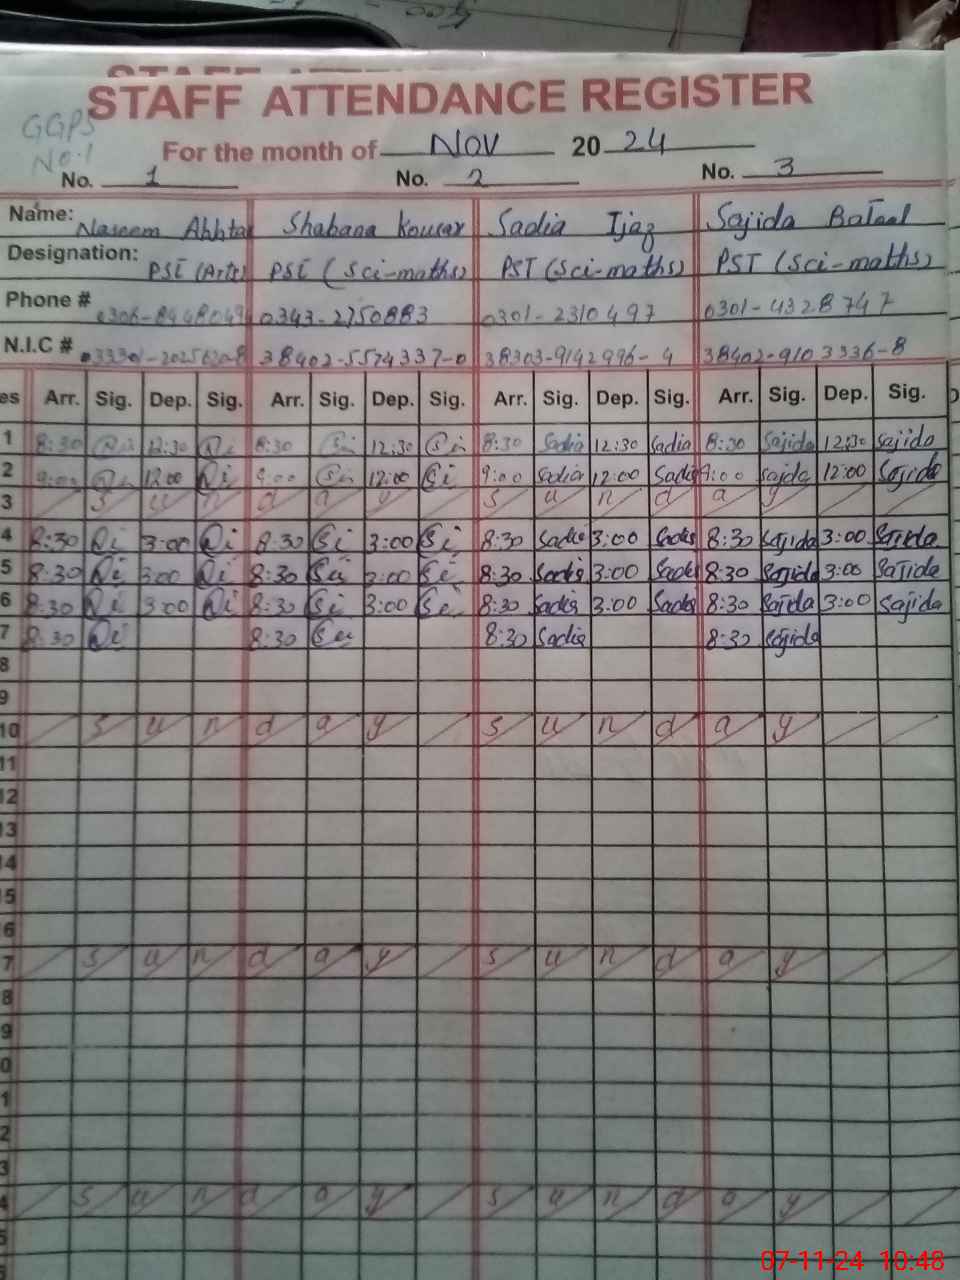 STAFF ATTENDANCE REGISTER
GGPS
No.1
For the month of Nov 2024
No. 1 No. 2 No. 3
Name: Naseem Akhtar Shabana Kousar Sadia Ijaz Sajida Batool
Designation: PST (Arts) PST (Sci-maths) PST (Sci-maths) PST (Sci-maths)
Phone # 0343-2750883 0301-2310497 0301-4328747
N.I.C # 38402-5574337-0 38303-9142996-4 38402-9103336-8
es Arr. Sig. Dep. Sig. Arr. Sig. Dep. Sig. Arr. Sig. Dep. Sig. Arr. Sig. Dep. Sig.
1 8:30 12:30 8:30 12:30 8:30 Sadia 12:30 Sadia 8:30 Sajida 12:30 Sajida
2 9:00 12:00 9:00 12:00 9:00 Sadia 12:00 Sadia 9:00 Sajida 12:00 Sajida
3 S u n d a y S u n d a y
4 8:30 3:00 8:30 3:00 8:30 Sadia 3:00 Sadia 8:30 Sajida 3:00 Sajida
5 8:30 3:00 8:30 3:00 8:30 Sadia 3:00 Sadia 8:30 Sajida 3:00 Sajida
6 8:30 3:00 8:30 3:00 8:30 Sadia 3:00 Sadia 8:30 Sajida 3:00 Sajida
7 8:30 8:30 8:30 Sadia 8:30 Sajida
8
9
10 S u n d a y S u n d a y
11
12
13
14
5
6
7 S u n d a y S u n d a y
8
9
0
1
2
3
4 S u n d a y S u n d a y
5
07-11-24 10:48